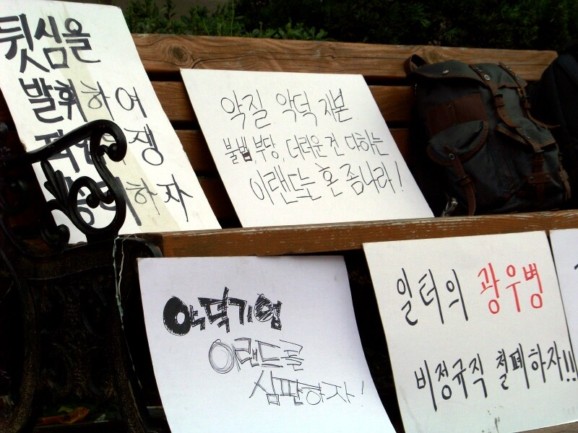 뒷심을
발휘하여
악질 악덕 자본
불법 부당, 더러운 건 다하는
이랜드는 혼 좀나라!
악덕기업
이랜드를
심판하자!
일터의 광우병
비정규직 철폐하자!!